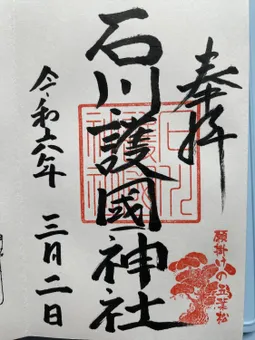 奉拝
石川護國神社
令和六年 三月二日
願掛けの五葉松